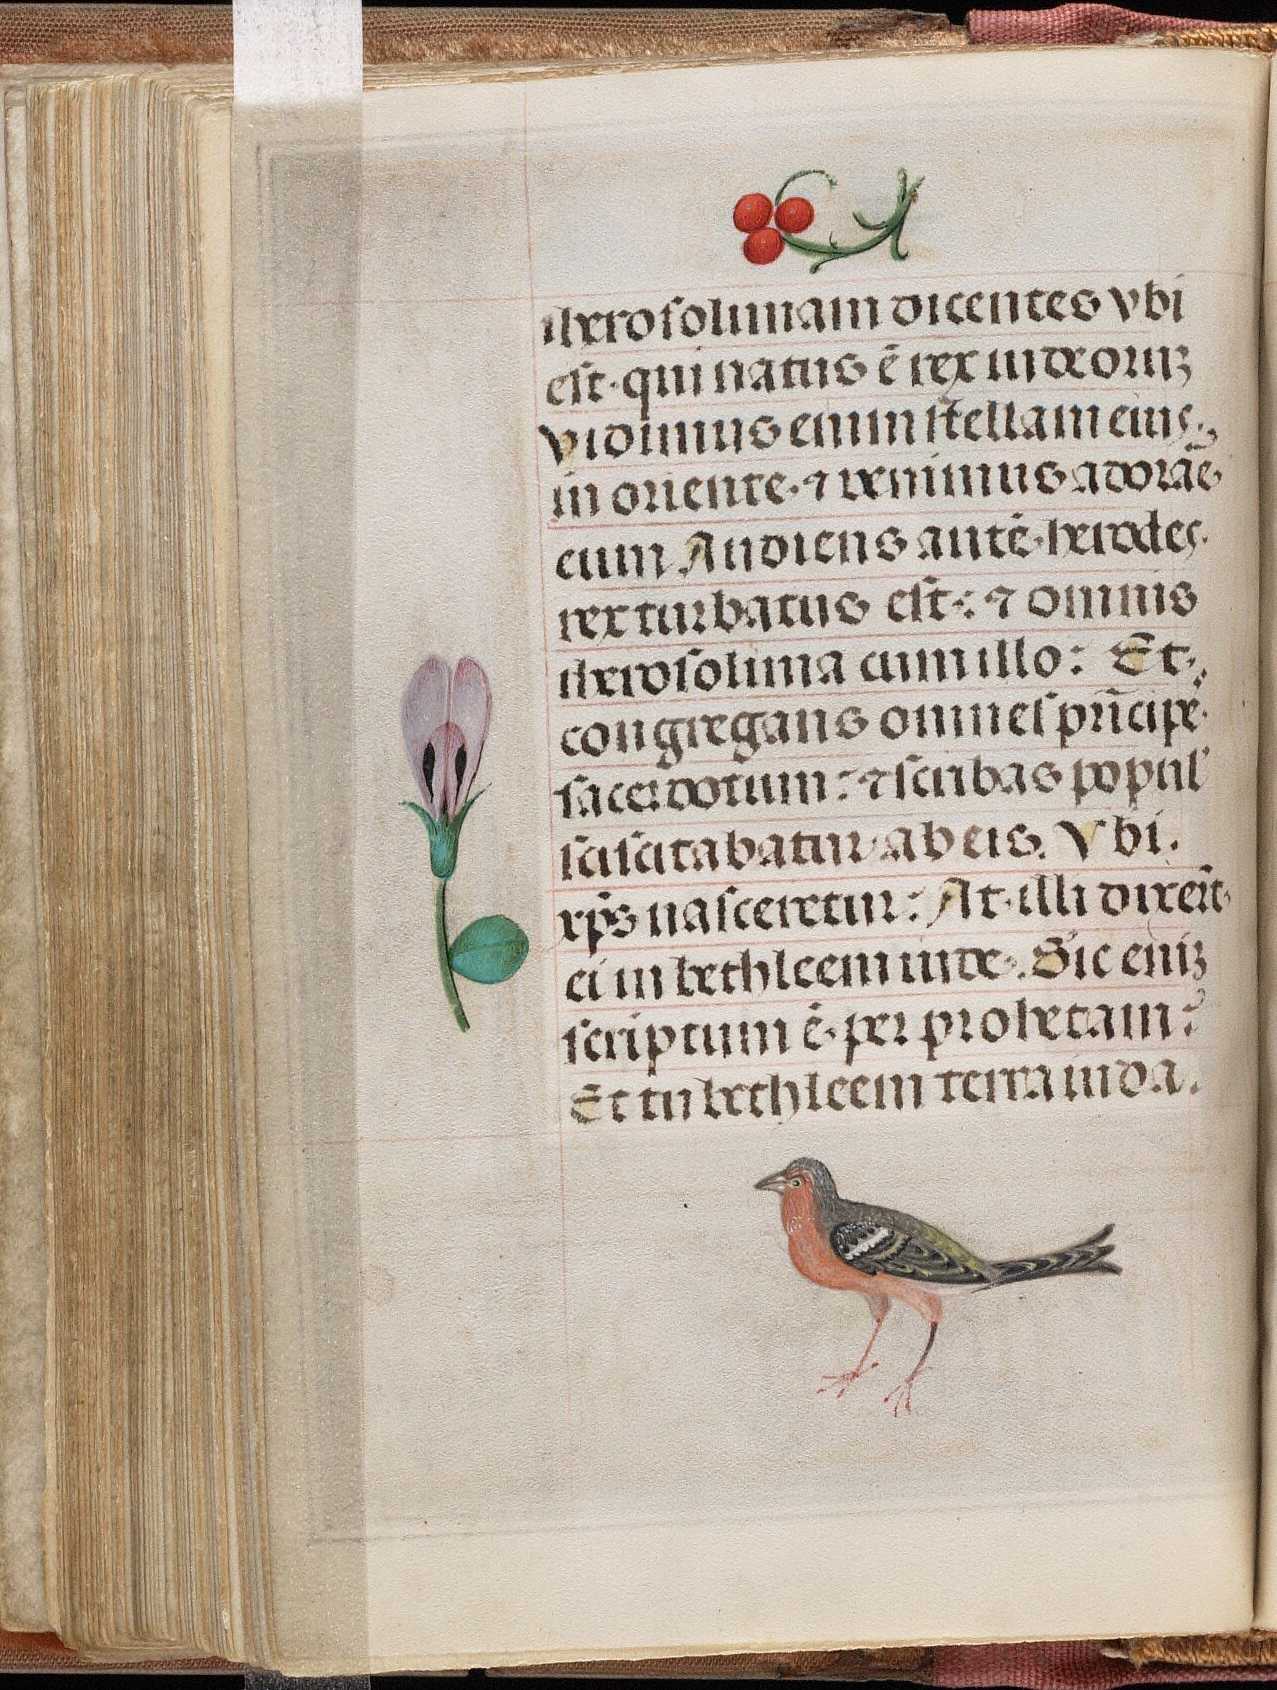 iherosolimam dicentes vbi
est · qui natus ē rex iudeoruʒ
vidimus enim stellam eius
in oriente · ⁊ venimus adorāe
eum Audiens autē · herodes ·
rex turbatus est : ⁊ omnis
iherosolima cum illo : Et ·
congregans omnes pr̄icipe ·
sacerdotum : ⁊ scribas popul'
sciscitabatur ab eis . Vbi .
xp̄s nasceretur : At · illi dixer̄t ·
ei in bethleem iude · . Sic eniʒ
scriptum ē · per prohetam :
Et tu bethleem terra iuda .